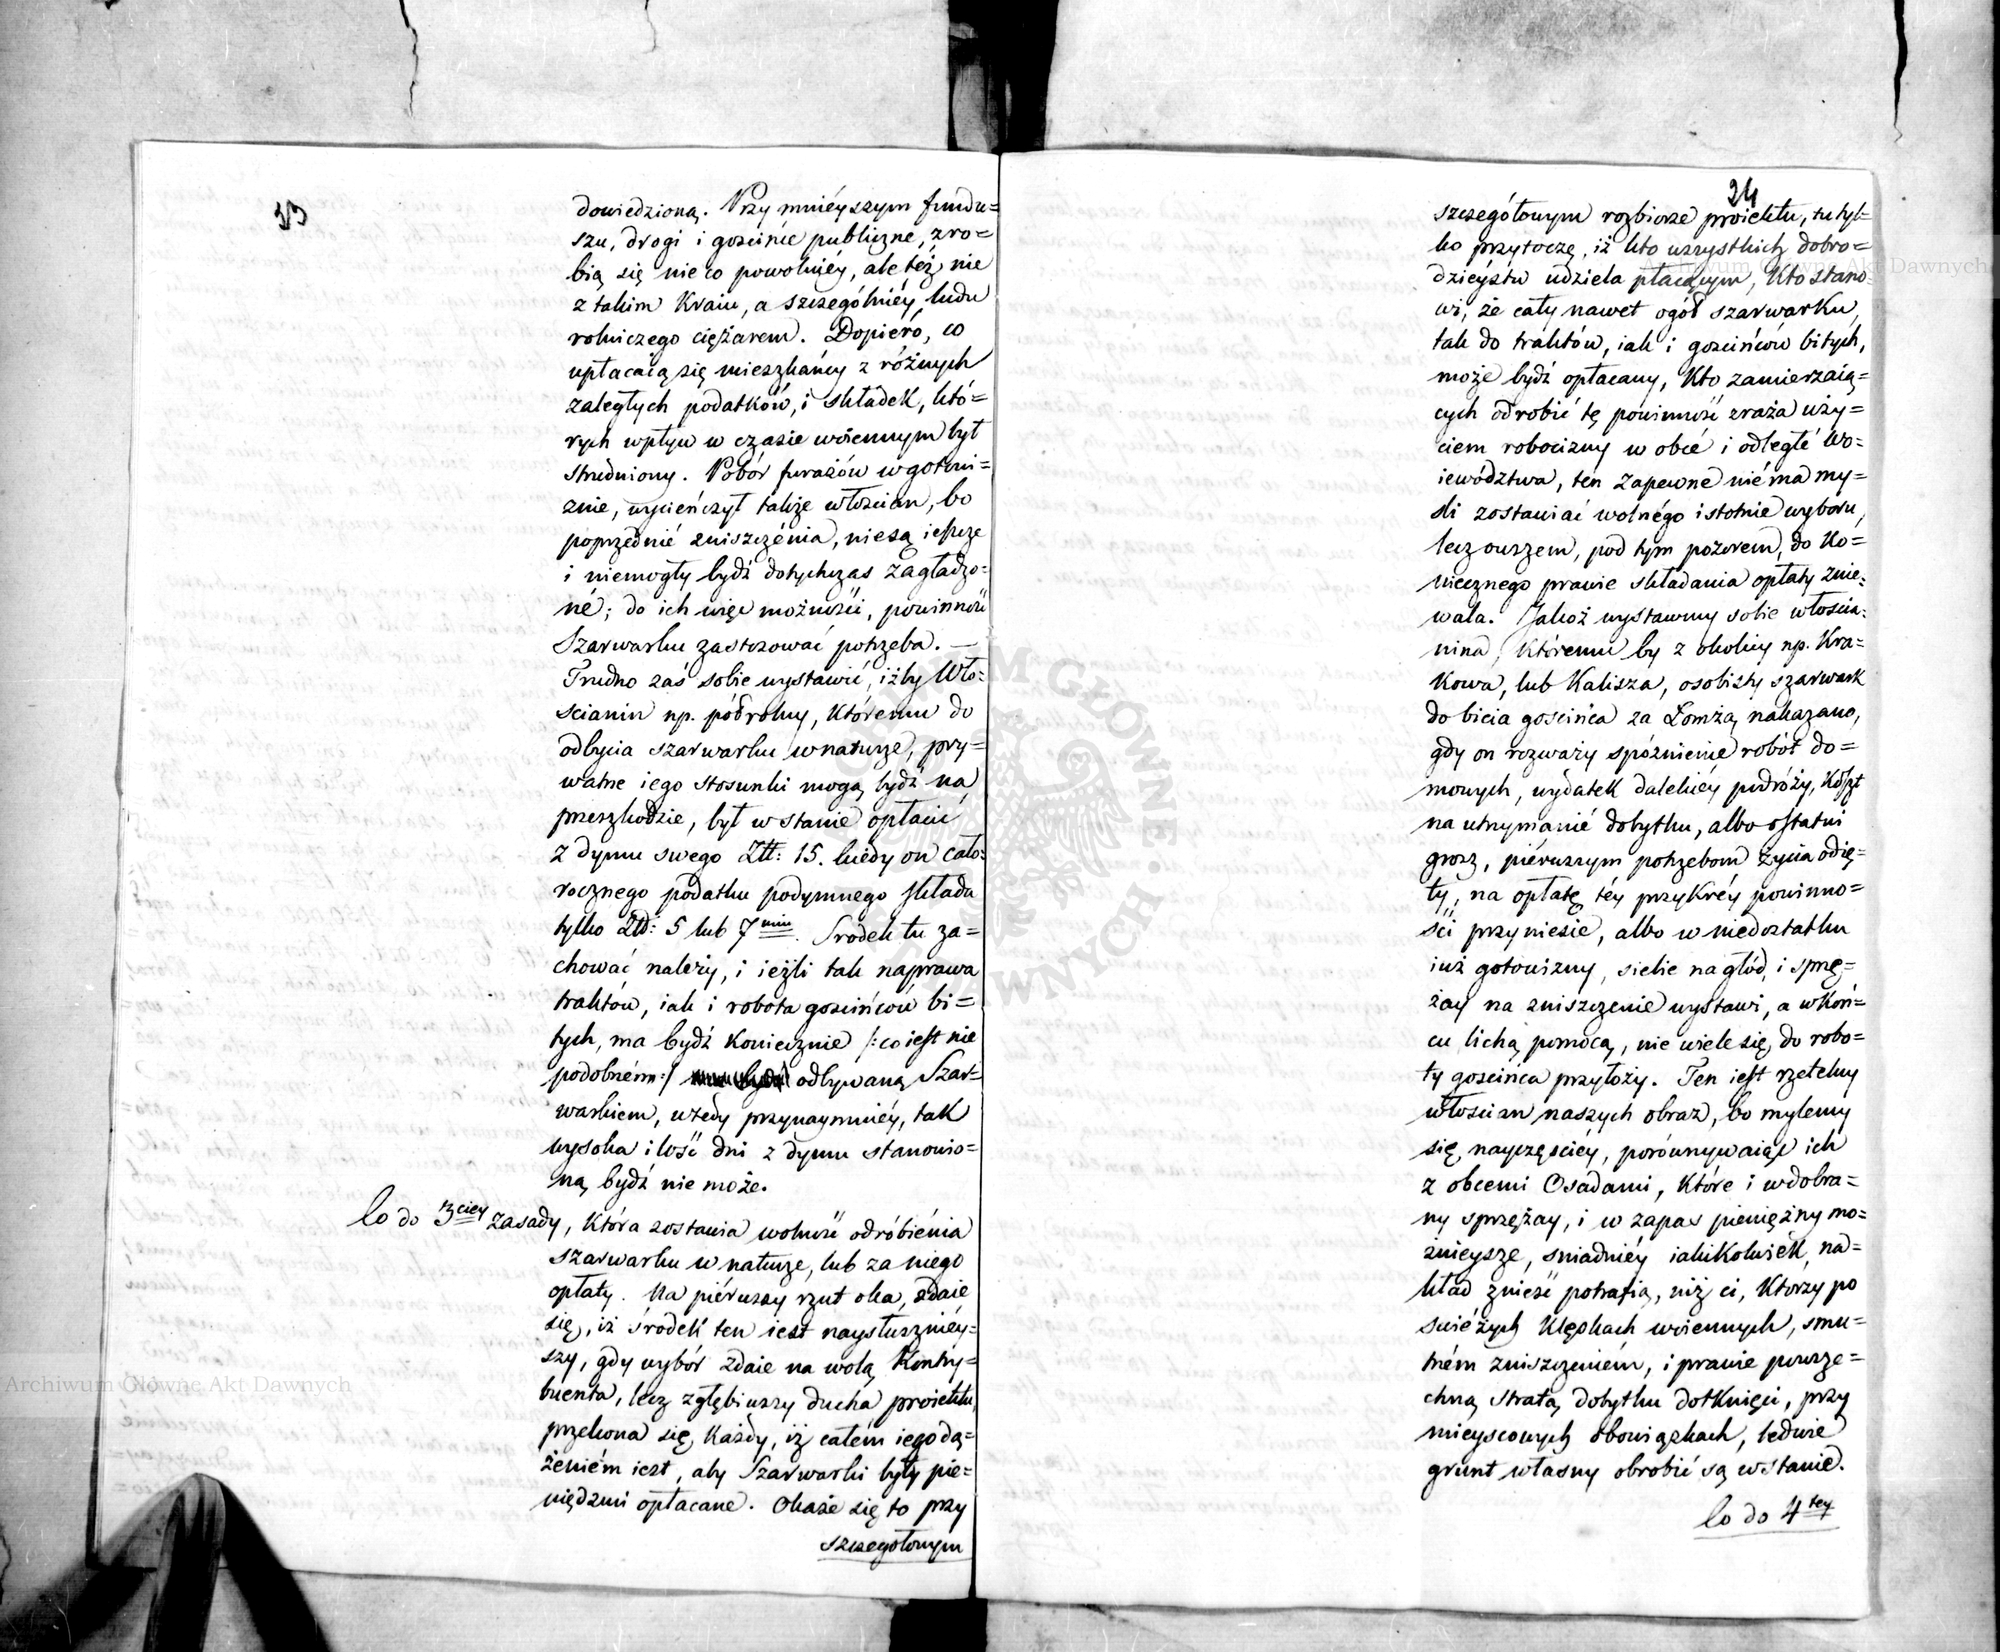 23
dowiedzioną. Przy mnieyszym fundu=
szu, drogi i gościńce publiczne, zro=
bią się nieco powolniéy, ale też nie
z takim Kraiu, a szczególniéy ludu
rolniczego ciężarem. Dopiéro, co
upłacaią się mieszkańcy z różnych
zaległych podatków, i składek, któ=
rych wpływ w czasie woiennym był
utrudniony. Pobór furażów w gotowi=
znie, wycieńczył także włościan, bo
poprzednié zniszczénia, niesą ieszcze
i niemogły bydź dotychczas zagładzo=
né; do ich więc możności, powinność
Szarwarku zastosować potrzeba. —
Trudno zaś sobie wystawić, iżby Wło=
ścianin np. półrolny, któremu do
odbycia szarwarku w naturze, pry=
watne iego stosunki mogą bydź na
przeszkodzie, był w stanie opłacić
z dymu swego Złł: 15. kiedy on cało=
rocznego podatku podymnego składa
tylko Złł: 5 lub 7 min. Srodek tu za=
chować należy, i ieżli tak naprawa
traktów, iak i robota gościńców bi=
tych, ma bydź koniecznie /: co iest nie
podobném :/ odbywaną Szar=
warkiem, wtedy przynaymniéy, tak
wysoka ilość dni z dymu stanowio=
ną bydź nie może.
Co do 3ciey zasady, która zostawia wolność odrobiénia
szarwarku w naturze, lub za niego
opłaty. Na piérwszy rzut oka, zdaie
się, iż środek ten iest naysłuszniéy=
szy, gdy wybór zdaie na wolą Kontry=
buenta, lecz zgłębiwszy ducha proiektu,
przekona się każdy, iż całém iego dą=
żeniém iest, aby Szarwarki były pie=
niędzmi opłacane. Okaże się to przy
szczegołowym
24
szczegółowym rozbiorze proiektu, tu tyl=
ko przytoczę, iż kto wszystkich dobro=
dzieystw udziela płacącym, Kto stano=
wi, że cały nawet ogół szarwarku,
tak do traktów, iak i gościńców bitych,
może bydź opłacany, Kto zamierzaią=
cych odrobić tę powinność zraża uży=
ciem robocizny w obce i odległé Wo=
iewództwa, ten zapewne niéma my=
śli zostawiać wolnégo istotnie wyboru,
lecz owszem, pod tym pozorem, do Ko=
niecznego prawie składania opłaty znie=
wala. Jakoż wystawmy sobie włościa=
nina, któremu by z okolicy np. Kra=
kowa, lub Kalisza, osobisty szarwark
do bicia gościńca za Łomżą nakazano,
gdy on rozważy spóźnienie robót do=
mowych, wydatek dalekiéy podróży, koszt
na utrzymanié dobytku, albo ostatni
grosz, piérwszym potrzebom życia odię=
ty, na opłatę téy przykréy powinno=
ści przyniesie, albo w niedostatku
iuż gotowizny, siebie na głód, i sprzę=
żay na zniszczenie wystawi, a w koń=
cu lichą pomocą, nie wiele się do robo=
ty gościńca przyłoży. Ten iest rzetelny
włościan naszych obraz, bo mylemy
się nayczęściéy, porównywaiąc ich
z obcemi Osadami, które i w dobra=
ny sprzężay, i w zapas pieniężny mo=
żnieysze, snadniéy iakikolwiek na=
kład znieść potrafią, niż ci, którzy po
świéżych klęskach woiennych, smu=
tném zniszczeniém, i prawie powsze=
chną stratą dobytku dotknięci, przy
mieyscowych obowiązkach, ledwie
grunt własny obrobić są w stanie.
Co do 4tey
Archiwum Główne Akt Dawnych
Archiwum Główne Akt Dawnych